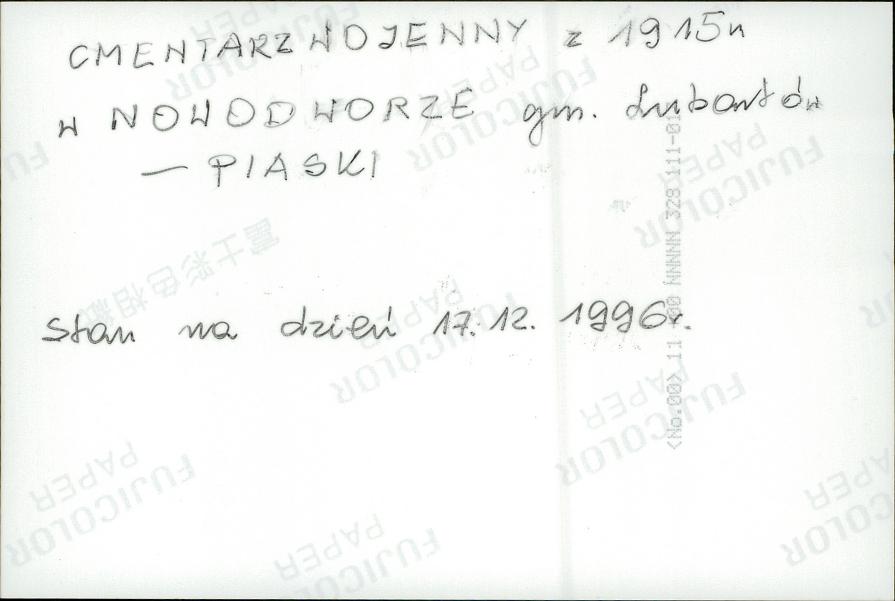 CMENTARZ WOJENNY z 1915 r
w NOWODWORZE gm. Lubartów
— PIASKI
Stan na dzień 17.12.1996r.
<No.00> 11 00 NNNNN 328 111-01
FUJICOLOR PAPER
富士彩色相紙